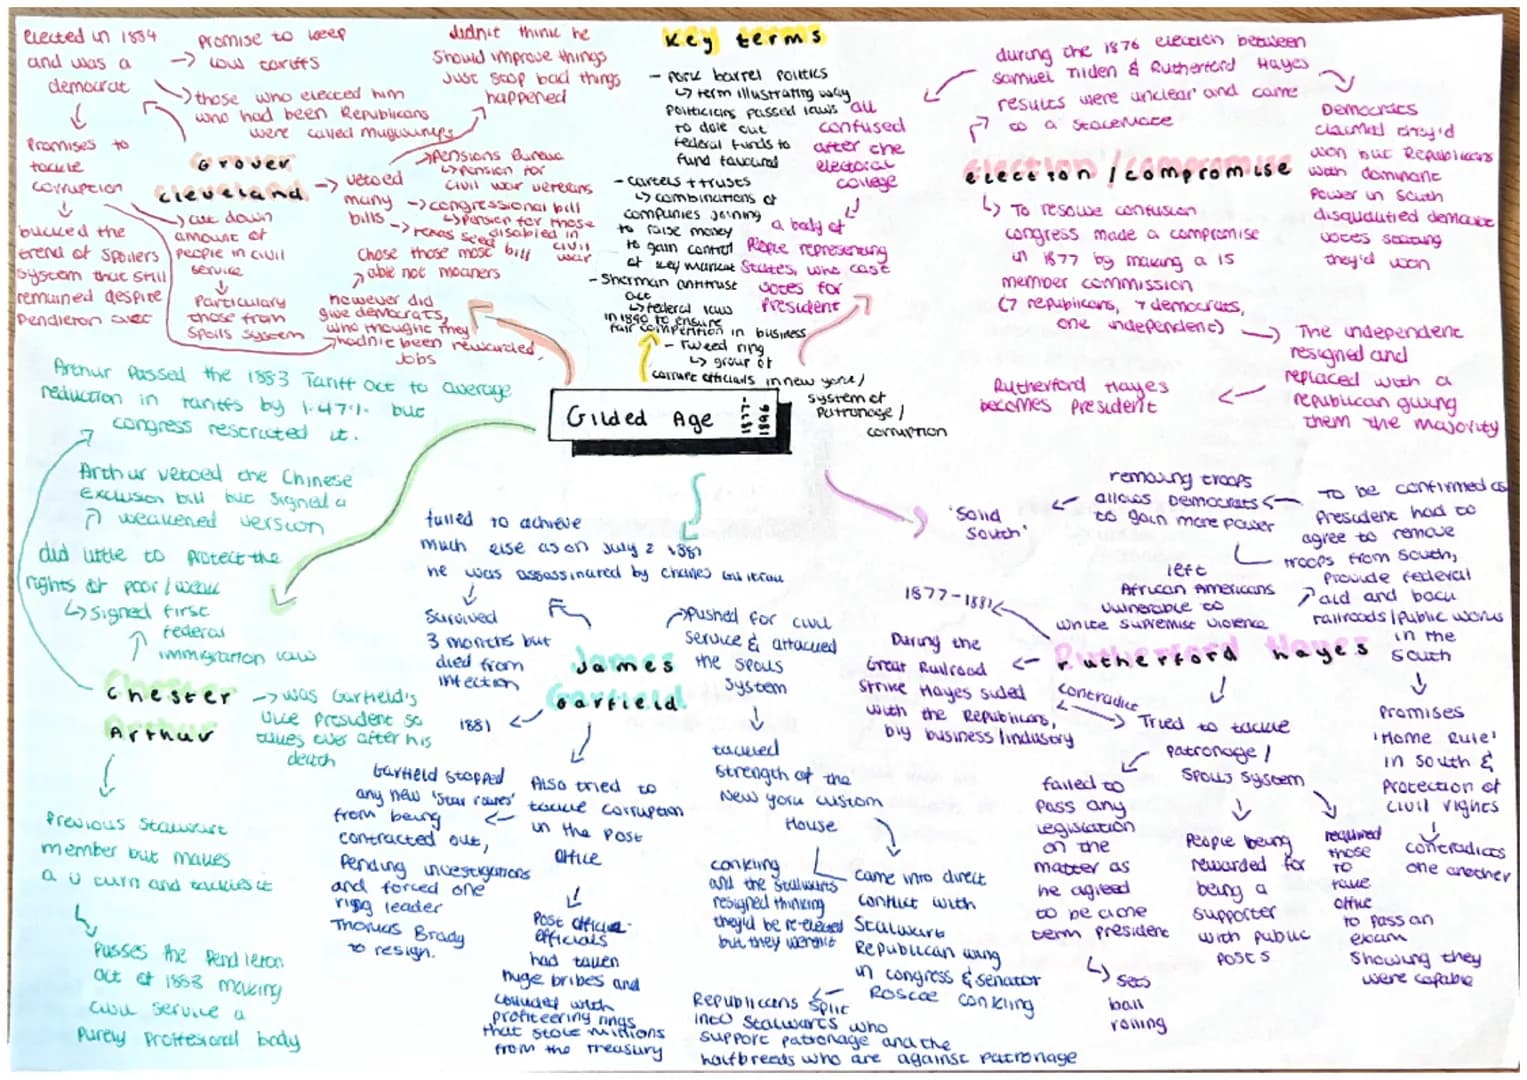 elected in 1884
and was a
democrat
promise to keep
→ low tariffs
those who elected him
who had been Republicans
were called mugwumps
Promises to
tackle
corruption
bucked the
trend of spoilers
system that still
remained despite
Pendleton over
Grover
Cleveland
→ cut down
amount of
people in civil
service
Particulary
those from
Spoils system
didn't think he
should improve things
just stop bad things
happened
→ vetoed
many
bills
→ Pensions Bureau
↳ pension for
civil war veterans
→ congressional bill
↳ Pension for those
disabled in
civil
war
→ Texas seed
bill
Chose those most
able not moaners
however did
give democrats,
who thought they
hadn't been rewarded,
jobs
Key terms
- pork barrel politics
↳ term illustrating way
politicians passed laws
to dole out
federal funds to
fund favoured
- cartels + trusts
↳ combinations of
companies joining
to raise money
to gain control
of key market
- Sherman antitrust
act
↳ federal law
in 1890 to ensure
fair competition in business
- Tweed ring
↳ group of
corrupt officials in new york /
system of
Patronage /
corruption
all
confused
after the
electoral
college
a body of
People representing
States, who cast
votes for
President
during the 1876 election between
Samuel Tilden & Rutherford Hayes
results were unclear and came
to a stalemate
Democrats
claimed they'd
won but Republicans
with dominant
Power in South
disqualified democratic
votes stating
they'd won
election / compromise
↳ To resolve confusion
congress made a compromise
in 1877 by making a 15
member commission
(7 republicans, 7 democrats,
one independent)
→ The independent
resigned and
replaced with a
republican giving
them the majority
Rutherford Hayes
becomes president
Gilded Age
1877-
1896
Arthur Passed the 1883 Tariff act to average
reduction in tariffs by 1.47% but
congress restricted it.
Arthur vetoed the Chinese
exclusion bill but signed a
weakened version
did little to protect the
rights of poor / weak
↳ signed first
federal
immigration law
Chester
Arthur
→ was Garfield's
vice President so
takes over after his
death
Previous Stalwart
member but makes
a U turn and tackles it
Passes the Pendleton
act of 1883 making
civil service a
Purely Proffesional body
failed to achieve
much else as on July 2 1881
he was assassinated by Charles Guiteau
Survived
3 months but
died from
infection
James
Garfield
1881
pushed for civil
service & attacked
the spoils
system
tackled
strength of the
New York custom
House
conkling
and the stalwarts
resigned thinking
they'd be re-elected
but they weren't
came into direct
conflict with
Stalwart
Republican wing
in congress & senator
Roscoe Conkling
Republicans split
into Stalwarts who
support patronage and the
halfbreeds who are against patronage
Also tried to
tackle corruption
in the Post
Office
Garfield stopped
any new 'star routes'
from being
contracted out,
Pending investigations
and forced one
ring leader
Thomas Brady
to resign.
Post office
officials
had taken
huge bribes and
colluded with
profiteering rings
that stole millions
from the treasury
'Solid
South'
removing troops
allows Democrats
to gain more power
To be confirmed as
President had to
agree to remove
troops from South,
Provide federal
aid and back
railroads / Public works
in the
South
left
African Americans
vulnerable to
white supremist violence
1877-1881
Rutherford Hayes
During the
Great Railroad
Strike Hayes sided
with the Republicans,
big business / industry
contradict
Tried to tackle
patronage /
Spoils System
failed to
pass any
legislation
on the
matter as
he agreed
to be a one
term president
↳ sets
ball
rolling
People being
rewarded for
being a
supporter
with public
posts
required
those
to
take
office
to pass an
exam
showing they
were capable
Promises
'Home Rule'
in South &
Protection of
civil rights
contradicts
one another